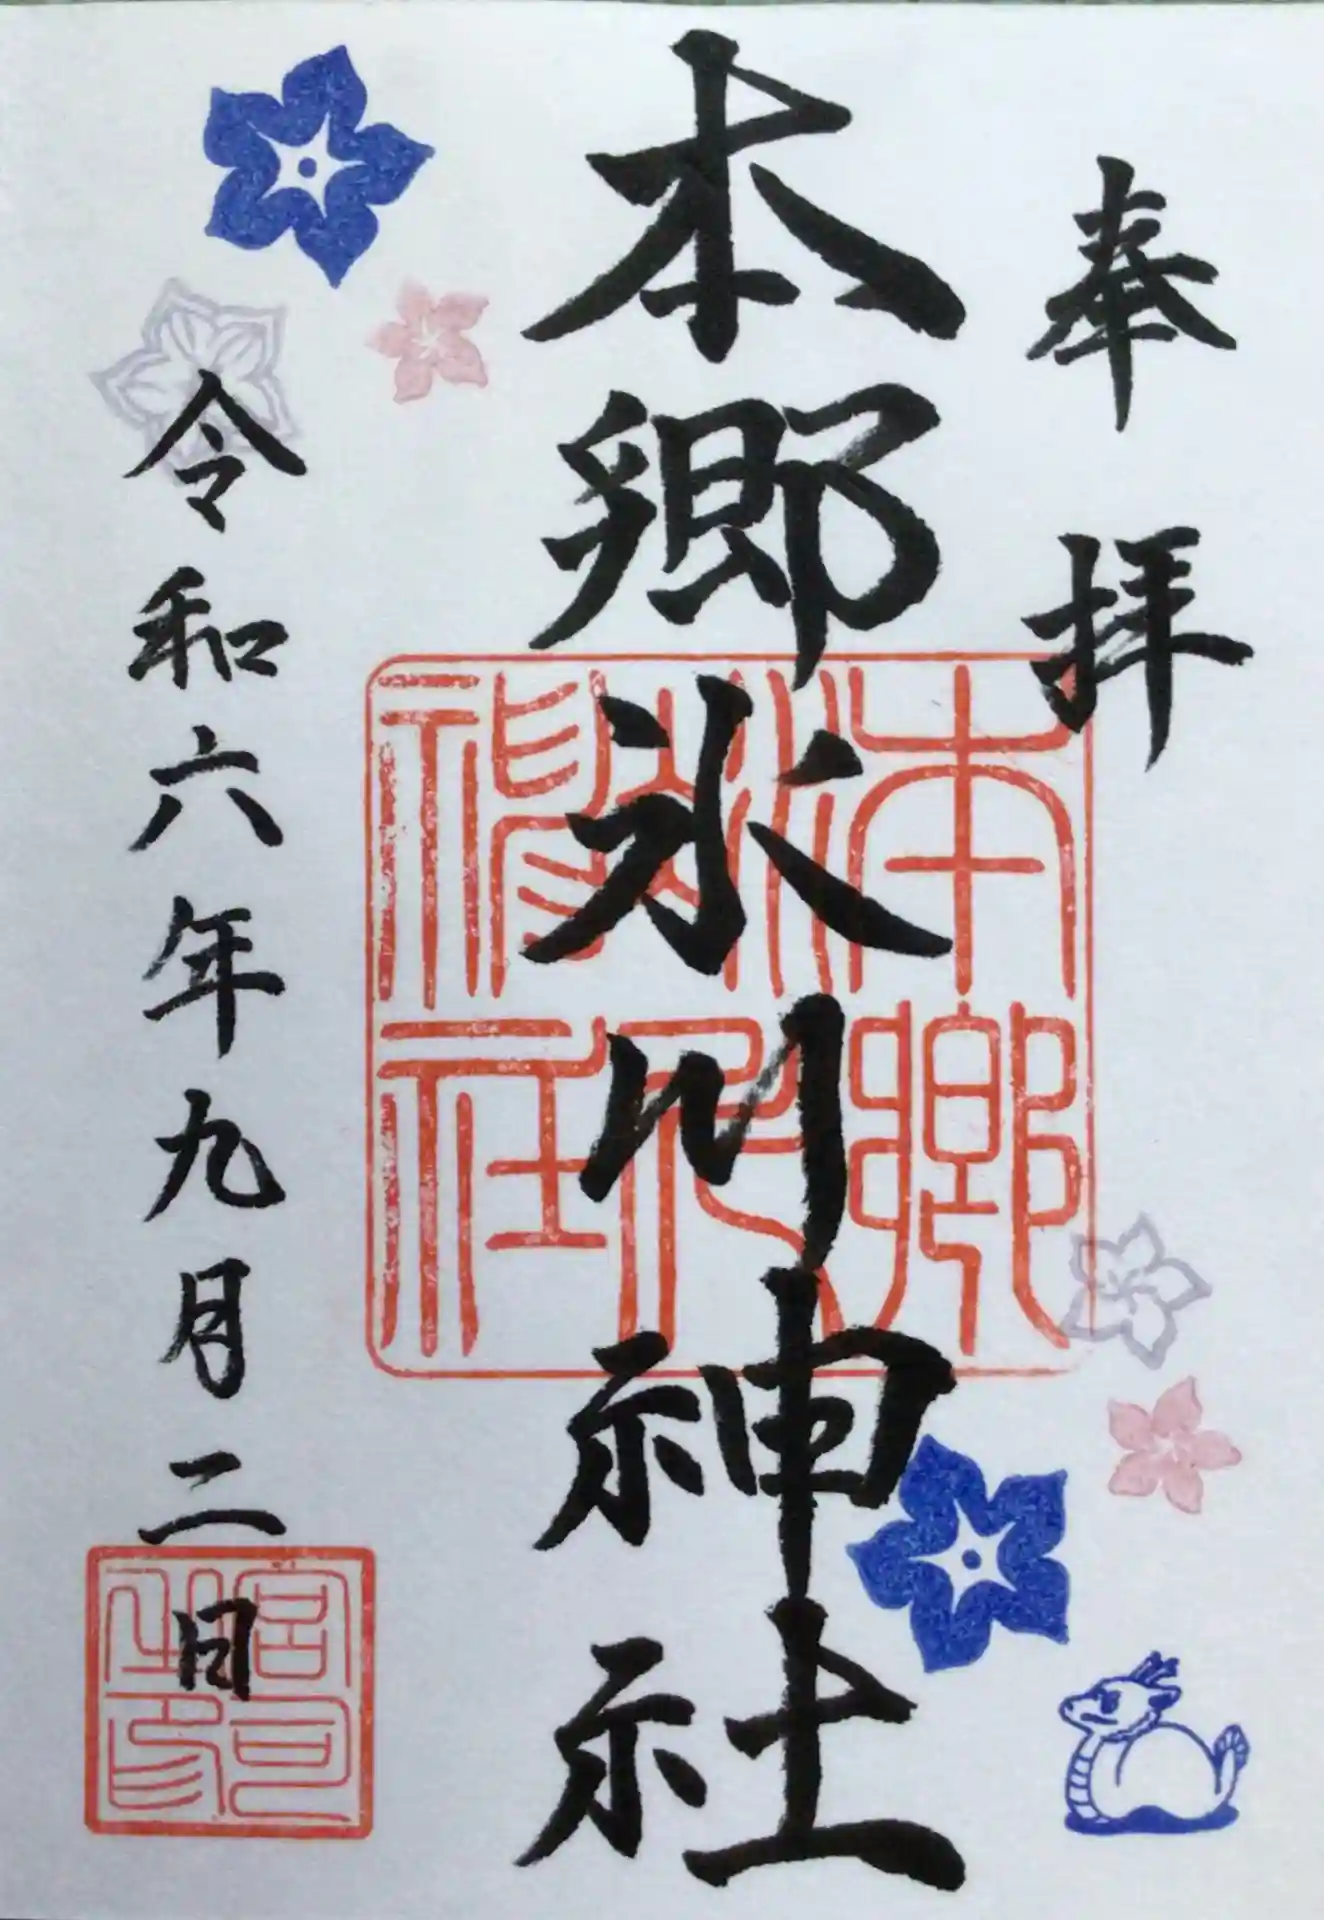 奉拝
本郷氷川神社
本郷
氷川
神社
令和六年九月二日
宮司
之印